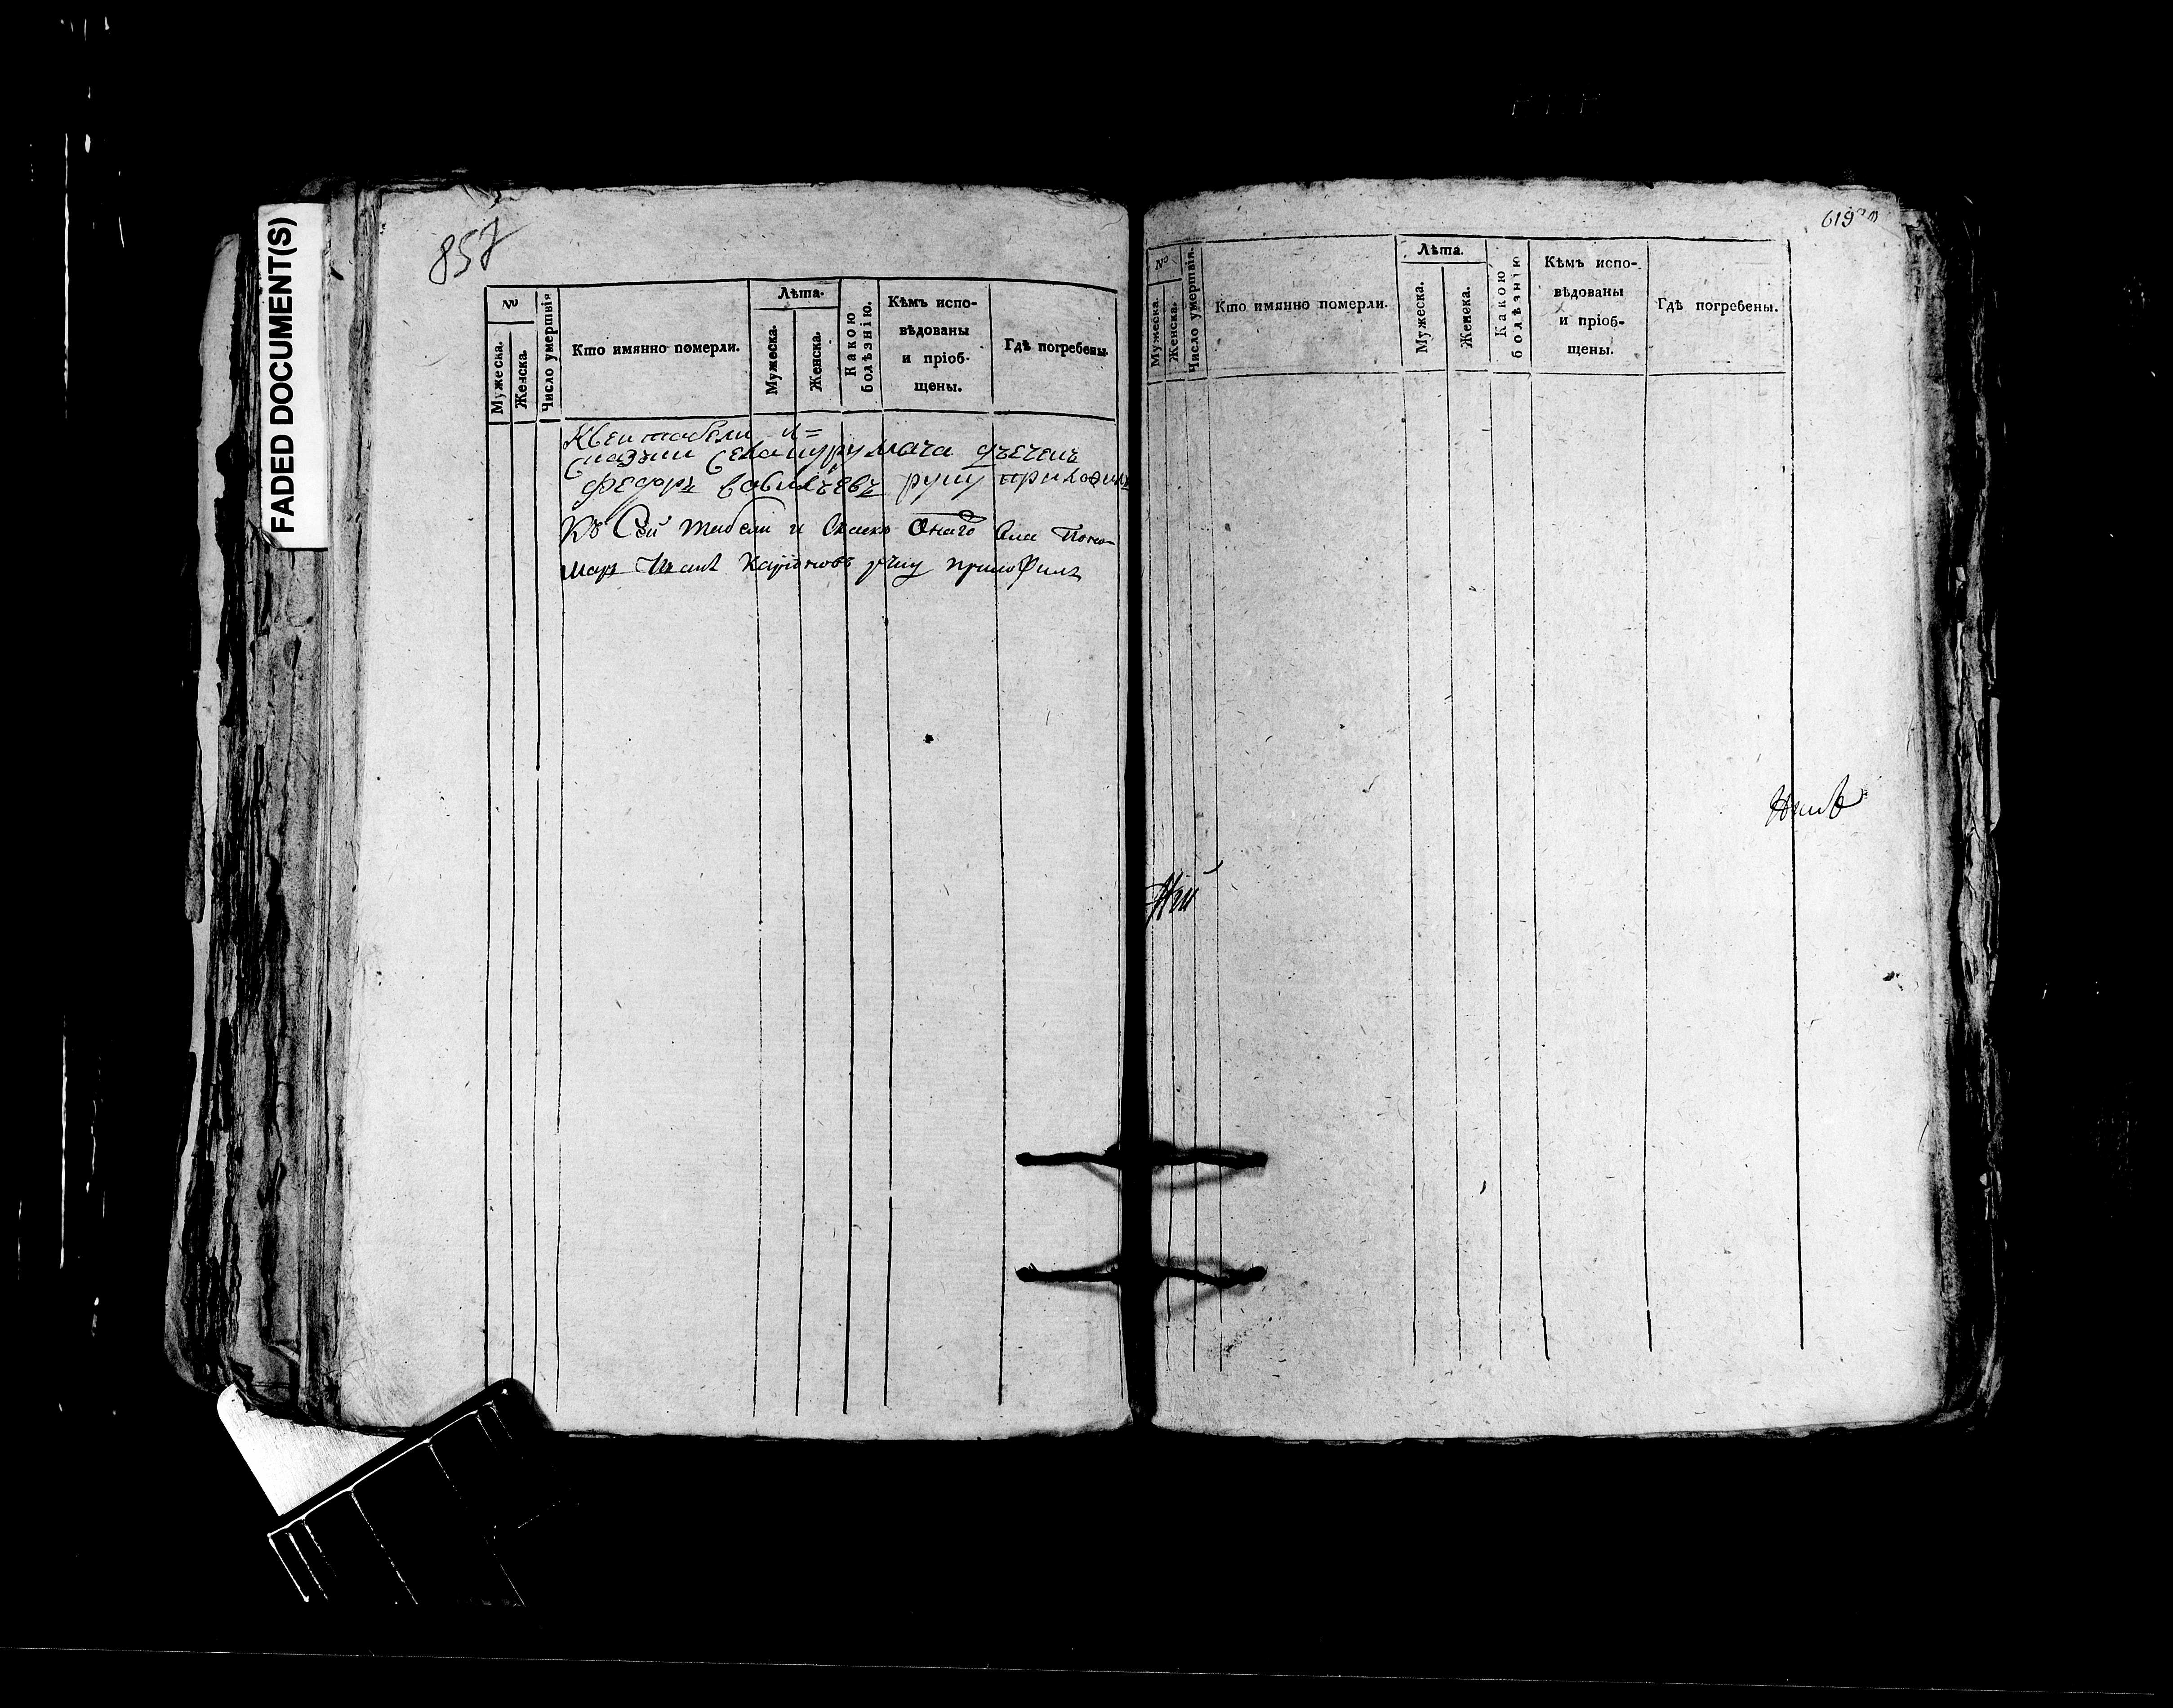 FADED DOCUMENT(S)
857
№
Мужеска.
Женска.
Число умертвія
Кто имянно померли.
Лѣта.
Мужеска.
Женска.
Какою болѣзнію.
Кѣмъ испо-
вѣдованы
и пріоб-
щены.
Гдѣ погребены.
Ксеи табели и=
Федоръ руку приложилъ
Къ Сей табели и онаго села Поно-
марь руку приложилъ
619
№
Мужеска.
Женска.
Число умертвія.
Кто имянно померли.
Лѣта.
Мужеска.
Женска.
Какою болѣзнію
Кѣмъ испо-
вѣдованы
и пріоб-
щены.
Гдѣ погребены.